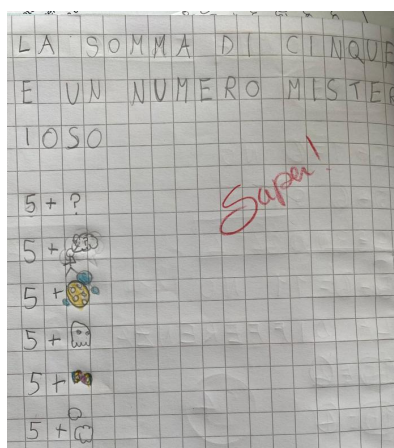 LA SOMMA DI CINQUE
E UN NUMERO MISTER
IOSO
Super!
5 + ?
5 +
5 +
5 +
5 +
5 +